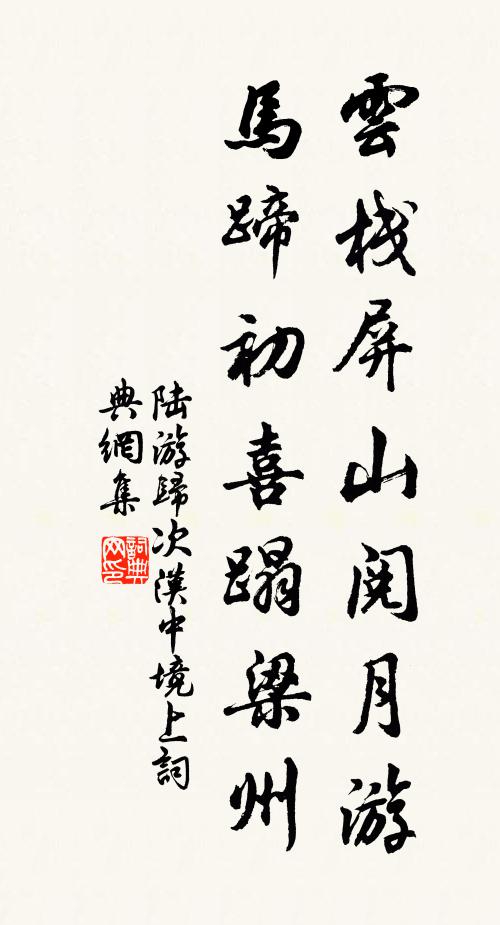 雲棧屏山閱月游
馬蹄初喜蹋梁州
陆游歸次漢中境上詞
典網集
詞典
网印